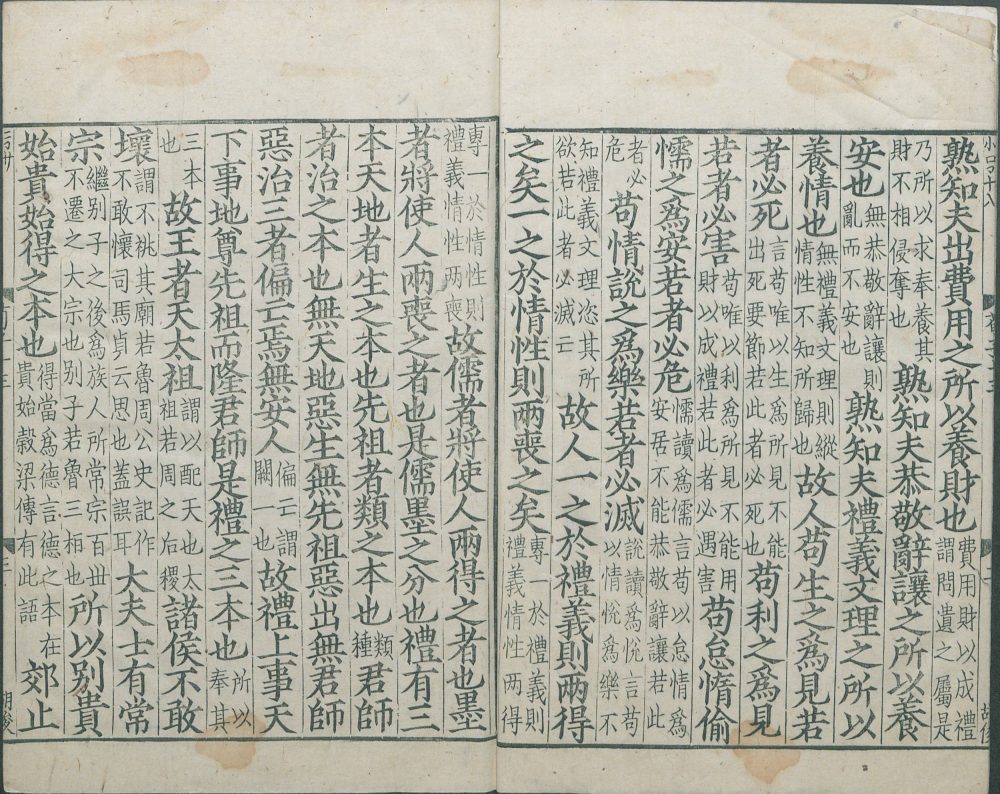 熟知夫出費用之所以養財也費用財以成禮謂問遺之屬是
乃所以求奉養其財不相侵奪也熟知夫恭敬辭讓之所以養
安也無恭敬辭讓則亂而不安也熟知夫禮義文理之所以
養情也無禮義文理則縱情性不知所歸也故人苟生之爲見若
者必死言苟唯以生爲所見不能出死要節若此者必死也苟利之爲見
若者必害苟唯以利爲所見不能用財以成禮若此者必遇害苟怠惰偷
懦之爲安若者必危懦讀爲儒言苟以怠惰爲安居不能恭敬辭讓若此
者必危苟情說之爲樂若者必滅說讀爲悅言苟以情悅爲樂不
知禮義文理恣其所欲若此者必滅亡故人一之於禮義則兩得
之矣一之於情性則兩喪之矣專一於禮義則禮義情性两得
專一於情性則禮義情性两喪故儒者將使人兩得之者也墨
者將使人兩喪之者也是儒墨之分也禮有三
本天地者生之本也先祖者類之本也類種君師
者治之本也無天地惡生無先祖惡出無君師
惡治三者偏亡焉無安人偏亡謂闕一也故禮上事天
下事地尊先祖而隆君師是禮之三本也所以奉其
三本也故王者天太祖謂以配天也太祖若周之后稷諸侯不敢
壞謂不祧其廟若魯周公史記作不敢懷司馬貞云思也蓋誤耳大夫士有常
宗繼别子之後爲族人所常宗百丗不遷之大宗也别子若魯三桓也所以别貴
始貴始得之本也得當爲德言德之本在貴始穀梁傳有此語郊止